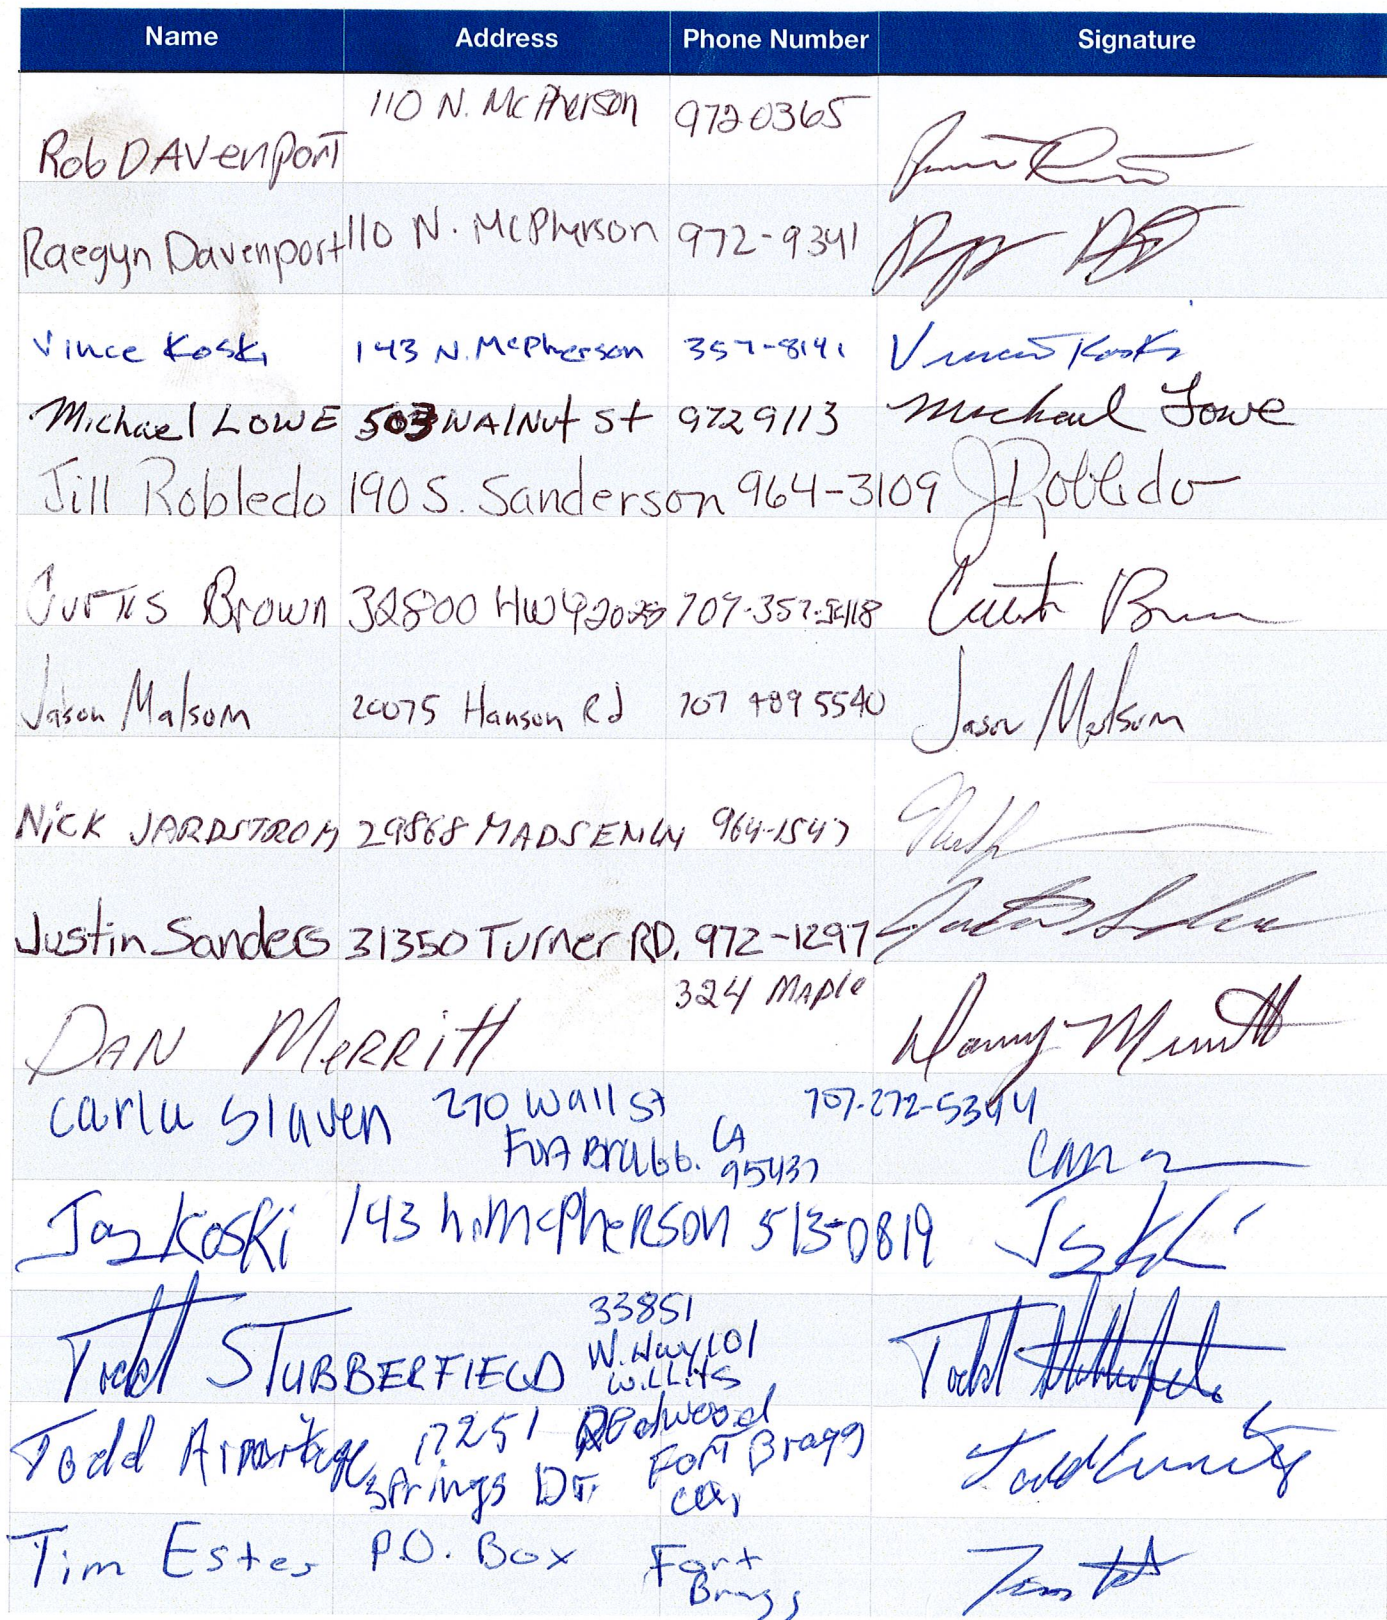 Name Address Phone Number Signature
Rob DAVenport 110 N. McPherson 972 0365
Raegyn Davenport 110 N. McPherson 972-9341
Vince Koski 143 N. McPherson 357-8141 Vincent Koski
Michael LOWE 503 WAlNut St 972 9113 Michael Lowe
Jill Robledo 190 S. Sanderson 964-3109 JRobledo
Curtis Brown 32800 HWY 20 707-357- Curtis Brown
Jason Malsom 20075 Hanson Rd 707 409 5540 Jason Malsom
NiCK JARDSTROM 29868 MADSEN LN 964-1547
Justin Sanders 31350 Turner RD. 972-1297
DAN MeRRitt 324 MAple Danny Merritt
Carla Slaven 270 Wall St 707-272-5394
Fort Bragg. CA
95437
Jay Koski 143 N. McPheRSON 513-0819
Todd STUBBERFIELD 33851 Todd
W. Hwy 101
WiLLitS
Todd Armitage 17251 Redwood
Springs Dr. Fort Bragg
Ca,
Tim Estes P.O. Box Fort
Bragg